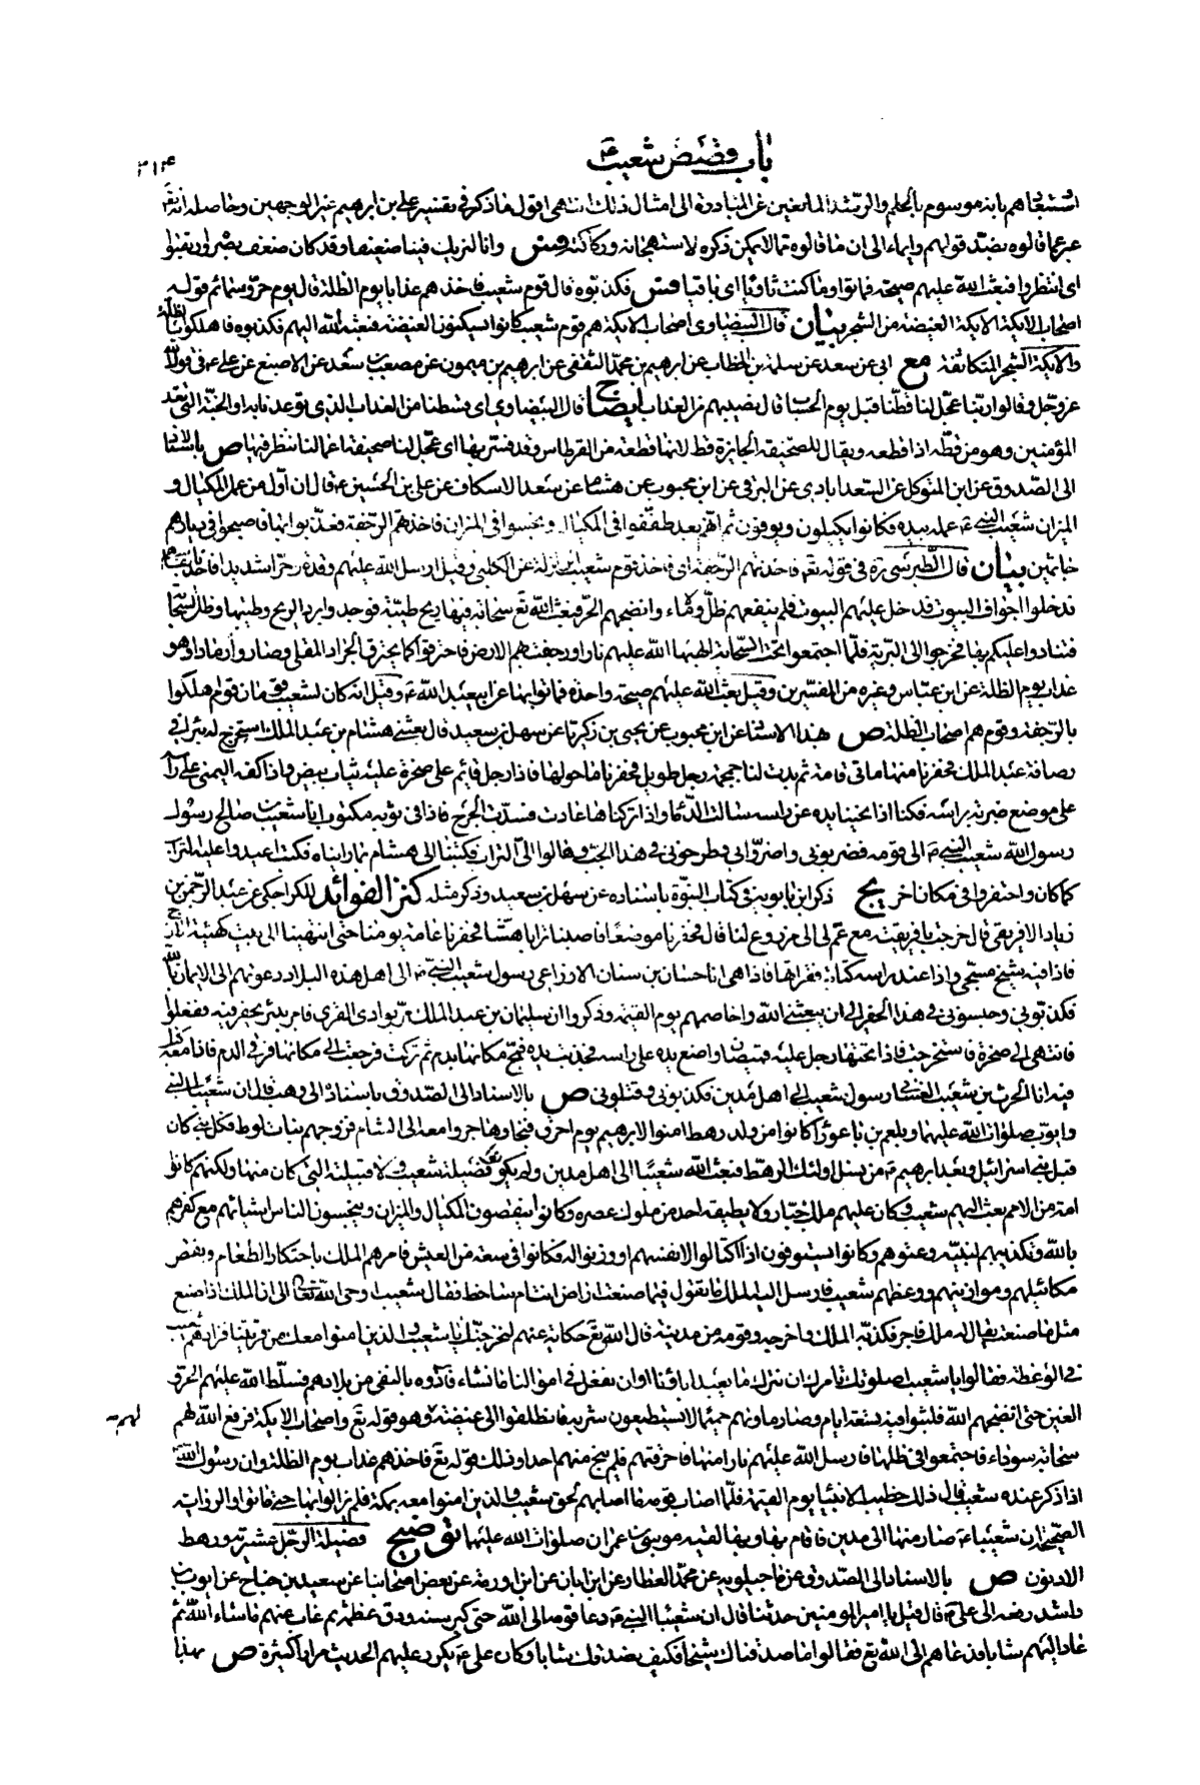 باب قصص شعيب ع
٣١٤
استبعادهم بانه موسوم بالحلم والرشد المانعين عن المبادرة الى امثال ذلك انتهى اقول ما ذكر في تفسير علي بن ابرهيم غير الوجهين وحاصله انه تع
عبر عما قالوه بضد قولهم وايماء الى ان ما قالوه مما لا يمكن ذكره لاستهجانه وركاكته فس وانا لنريك فينا ضعيفا وقد كان ضعف بصره وارتقبوا
اى انتظروا فبعث الله عليهم صيحة فماتوا وما كنت ثاويا اى باقيا فس فكذبوه قال قوم شعيب فاخذهم عذاب يوم الظلة قال يوم حر وسمائم قوله
اصحاب الايكة الايكة الغيضة من الشجر بيان قال البيضاوى اصحاب الايكة هم قوم شعيب كانوا يسكنون الغيضة فبعثه الله اليهم فكذبوه فاهلكوا بالظلة
والايكة الشجر المتكاثفة مع ابى عن سعد عن سلمة بن الخطاب عن ابرهيم بن محمد الثقفى عن ابرهيم بن ميمون عن مصعب بن سعد عن الاصبغ عن على ع فى قول الله
عز وجل وقالوا ربنا عجل لنا قطنا قبل يوم الحساب قال نصيبهم من العذاب ايضاح قال البيضاوى اى قسطنا من العذاب الذى توعدنا به او الجنة التى تعد
المؤمنين وهو من قطه اذا قطعه ويقال للصحيفة الجايزة قط لانها قطعة من القرطاس وقد فسر بها اى عجل لنا صحيفة اعمالنا ننظر فيها ص بالاسناد
الى الصدوق عن ابن المتوكل عن السعدابادى عن البرقى عن ابن محبوب عن هشام عن سعد الاسكاف عن على بن الحسين ع قال ان اول من عمل المكيال و
الميزان شعيب النبى ع عمله بيده فكانوا يكيلون ويوفون ثم انهم بعد طففوا فى المكيال وبخسوا فى الميزان فاخذتهم الرجفة فعذبوا بها فاصبحوا فى ديارهم
جاثمين بيان قال الطبرسى ره فى قوله تع فاخذتهم الرجفة اى فاخذ قوم شعيب الزلزلة عن الكلبى وقيل ارسل الله عليهم وقدة وحرا شديدا فاخذ بانفاسهم
فدخلوا اجواف البيوت فدخل عليهم البيوت فلم ينفعهم ظل ولا ماء وانضجهم الحر فبعث الله تع سحابة فيها ريح طيبة فوجدوا برد الريح وطيبها وظل السحابة
فتنادوا عليكم بها فخرجوا الى البرية فلما اجتمعوا تحت السحابة الهبها الله عليهم نارا ورجفت بهم الارض فاحترقوا كما يحترق الجراد المقلى وصاروا رمادا وهو
عذاب يوم الظلة عن ابن عباس وغيره من المفسرين وقيل بعث الله عليهم صيحة واحدة فماتوا بها عن ابيعبد الله ع وقيل انه كان لشعيب قومان قوم اهلكوا
بالرجفة وقوم هم اصحاب الظلة ص بهذا الاسناد عن ابن محبوب عن يحيى بن زكريا عن سهل بن سعيد قال بعثنى هشام بن عبد الملك استخرج له بئرا فى
رصافة عبد الملك فحفرنا منها مأتى قامة ثم بدت لنا جمجمة رجل طويل فحفرنا ما حولها فاذا رجل قائم على صخرة عليه ثياب بيض واذا كفه اليمنى على راسه
على موضع ضربة براسه فكنا اذا نحينا يده عن راسه سالت الدماء واذا تركناها عادت فسدت الجرح فاذا فى ثوبه مكتوب انا شعيب بن صالح رسول
رسول الله شعيب النبى ع الى قومه فضربونى واضروا بى وطرحونى فى هذا الجب وهالوا الى التراب فكتبنا الى هشام بما رايناه فكتب اعيدوا عليه التراب
كما كان واحتفروا فى مكان اخر يج ذكر ابن بابويه فى كتاب النبوة باسناده عن سهل بن سعيد وذكر مثله كنز الفوائد للكراجكى عن عبد الرحمن بن
زياد الافريقى قال خرجت بافريقية مع عم لى الى مزدرع لنا قال فحفرنا موضعا فاصبنا ترابا هشا فحفرنا عامة يومنا حتى انتهينا الى بيت كهيئة الازج
فاذا فيه شيخ مسجى واذا عند راسه كتابة فقراتها فاذا هى انا حسان بن سنان الاوزاعى رسول شعيب النبى ع الى اهل هذه البلاد دعوتهم الى الايمان بالله
فكذبونى وحبسونى فى هذا الحفير الى ان يبعثنى الله واخاصمهم يوم القيمة وذكروا ان سليمان بن عبد الملك مر بوادى القرى فامر ببئر يحفر فيه ففعلوا
فانتهى الى صخرة فاستخرجت فاذا تحتها رجل عليه قميصان واضع يده على راسه فجذبت يده فثج مكانها بدم ثم تركت فرجعت الى مكانها فرقى الدم فاذا معه كتاب
فيه انا الحرث بن شعيب الغسانى رسول شعيب الى اهل مدين فكذبونى وقتلونى ص بالاسناد الى الصدوق باسناده الى وهب قال ان شعيبا النبى
وايوب صلوات الله عليهما وبلعم بن باعورا كانوا من ولد رهط امنوا لابرهيم يوم احرق فنجا وهاجروا معه الى الشام فزوجهم بنات لوط فكل نبى كان
قبل بنى اسرائيل وبعد ابرهيم ع من نسل اولئك الرهط فبعث الله شعيبا الى اهل مدين ولم يكونوا فصيلة شعيب ولا قبيلته التى كان منها ولكنهم كانوا
امة من الامم بعث اليهم شعيب وكان عليهم ملك جبار ولا يطيقه احد من ملوك عصره وكانوا ينقصون المكيال والميزان ويبخسون الناس اشيائهم مع كفرهم
بالله وتكذيبهم لنبيه وعتوهم وكانوا يستوفون اذا اكتالوا لانفسهم او وزنوا له فكانوا فى سعة من العيش فامرهم الملك باحتكار الطعام ونقص
مكائيلهم وموازينهم ووعظهم شعيب فارسل اليه الملك ما تقول فيما صنعت اراض انت ام ساخط فقال شعيب اوحى الله تعالى الى ان الملك اذا صنع
مثل ما صنعت يقال له ملك فاجر فكذبه الملك واخرجه وقومه من مدينته قال الله تع حكاية عنهم لنخرجنك يا شعيب والذين امنوا معك من قريتنا فزادهم شعيب
فى الوعظ فقالوا يا شعيب اصلوتك تامرك ان نترك ما يعبد اباؤنا او ان نفعل فى اموالنا ما نشاء فاذوه بالنفى من بلادهم فسلط الله عليهم الحر و
الغيم حتى انضجهم الله فلبثوا فيه تسعة ايام وصار ماؤهم حميما لا يستطيعون شربه فانطلقوا الى غيضة لهم وهو قوله تع واصحاب الايكة فرفع الله لهم
سحابة سوداء فاجتمعوا فى ظلها فارسل الله عليهم نارا منها فاحرقتهم فلم ينج منهم احد وذلك قوله تع فاخذهم عذاب يوم الظلة وان رسول الله ص
اذا ذكر عنده شعيب قال ذلك خطيب الانبياء يوم القيمة فلما اصاب قومه ما اصابهم لحق شعيب والذين امنوا معه بمكة فلم يزالوا بها حتى ماتوا والرواية
الصحيحة ان شعيبا ع صار منها الى مدين فاقام بها وبها لقيه موسى بن عمران صلوات الله عليهما توضيح فصيلة الرجل عشيرته ورهطه
الادنون ص بالاسناد الى الصدوق عن ماجيلويه عن محمد العطار عن ابن ابان عن ابن اورمة عن بعض اصحابنا عن سعيد بن جناح عن ايوب بن
راشد رفعه الى على ع قال قيل يا امير المومنين حدثنا قال ان شعيبا النبى ع دعا قومه الى الله حتى كبر سنه ودق عظمه ثم غاب عنهم ما شاء الله ثم
عاد اليهم شابا فدعاهم الى الله تع فقالوا ما صدقناك شيخا فكيف نصدقك شابا وكان على ع يكرر عليهم الحديث مرارا كثيرة ص بهذا